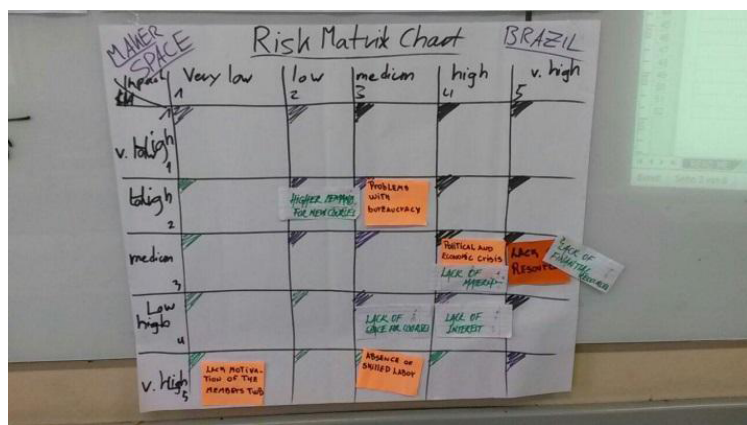 MAKER SPACE
Risk Matrix Chart
BRAZIL
Impact
Very low
low
medium
high
v. high
1
2
3
4
5
v.
1
2
HIGHER DEMAND
FOR NEW COURSES
PROBLEMS
WITH
BUREAUCRACY
medium
3
POLITICAL AND
ECONOMIC CRISIS
LACK OF
LACK
LACK OF
FINANCIAL
high
4
LACK OF
LACK OF
INTEREST
v. High
5
LACK MOTIVA-
TION OF THE
MEMBERS
ABSENCE OF
SKILLED LABOR